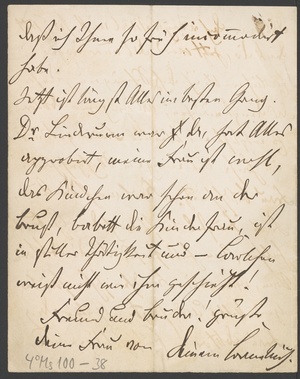 daß ich Ihnen so früh incommodirt
habe.
Jetzt ist längst Alles im besten Gang.
Dr. Lindemann war da, hat Alles
approbirt, meine Frau ist wohl,
das Kindchen war schon an der
Brust, Babett die Kinderfrau, ist
in stiller Thätigkeit und –
weiß nicht wie ihm geschieht!
Freund und Bruder! grüße
Deine Frau von Deinem Cornelius.
4° Ms 100 – 38